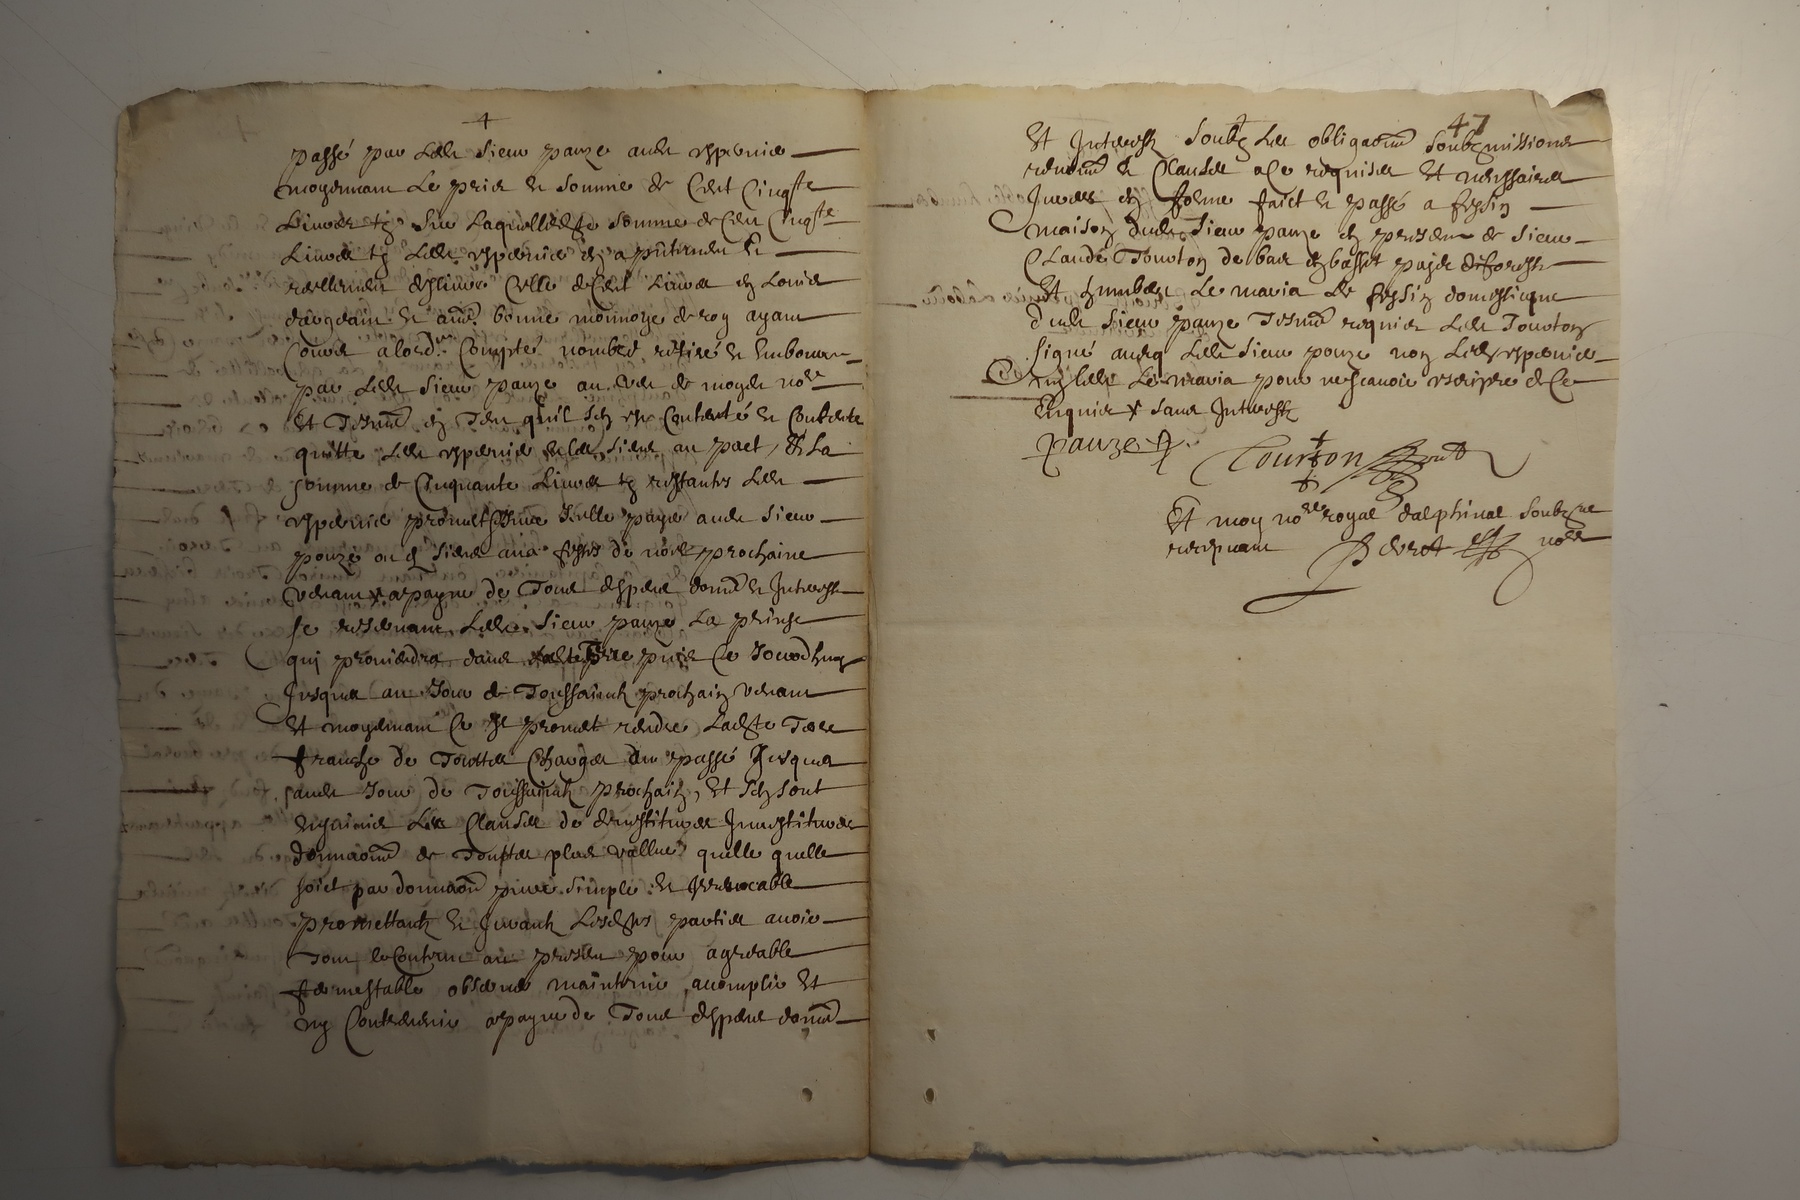 4
passé par Ledt Sieur pauze audt espervier
moyennant Le prix et somme de Cent Cinqte
Livres tz Sur Laquelle dte somme de Cent Cinqte
Livres tz Ledt espervier en a puremen et
reellemen deslivré Celle de Cent Livres en Louis
dargeant et aue bonne monnoye de roy ayant
Cours a lord.re Compté nombré retiré et Embourse
par Ledt Sieur pauze au veu de moyd nore
Et Tesm en Tene quil sen est Contenté et Contente
quitte Ledt espervier et les siens au pact, Et La
somme de Cinquante Livres tz restantes Ledt
espervier promet Icelle payer audt Sieur
pauze ou es siens aux festes de noel prochaine
venant a payne de Tous despens dom et Interestz
se reservant Ledt Sieur pauze La prinse
qui proviendra dans puis Ce Jourdhuy
Jusques au Jour de Toussainctz prochain venant
Et moyennant Ce Il promet rendre Ladte Terre
franche de Touttes Charges du passé Jusques
audt Jour de Toussainctz prochain, Et sen sont
Les Clauses de devestitures Investitures
donnaons de Touttes plus vallue quelle quelle
soict par donnaon pure simple et Irrevocable
promettantz et Jurantz Lesdtes parties avoir
Tout le Contenu au presen pour agreable
ferme stable observer maintenir, acomplir Et
ny Contrevenir a payne de Tous despens dom
47
Et Interestz Soubz Les obligaons Soubzmissions
renon et Clauses a Ce requises Et nessaires
Jurees En forme faict et passé a feyzin
maison dudt Sieur pauze En presen de Sieur
Claude Tourton de basset
Et Le mavia de feyzin domestique
dudt Sieur pauze Tesm requis Ledt Tourton
signé avecq Ledt Sieur pauze non Ledt espervier
ny Ledt Le mavia pour ne scavoir escripre de Ce
Enquis sans Interestz
pauze
Tourton
Et moy nore royal dalphinal soubzne
recepvant nore